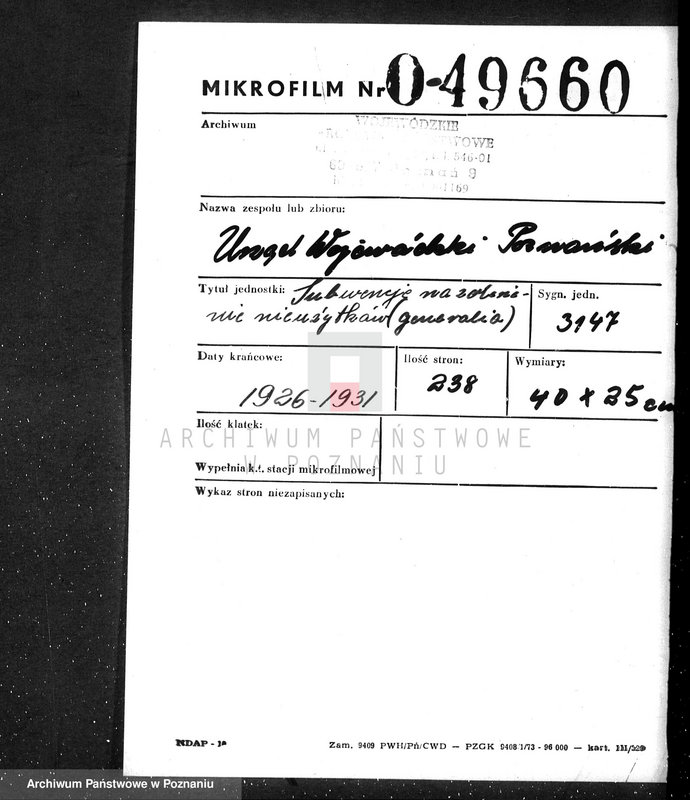 MIKROFILM Nr O-49660
Archiwum
WOJEWÓDZKIE
Nazwa zespołu lub zbioru:
Urząd Wojewódzki Poznański
Tytuł jednostki: Subwencje na zalesie-
nie nieużytków (generalia)
Sygn. jedn.
3147
Daty krańcowe:
1926-1931
Ilość stron:
238
Wymiary:
40 x 25 cm
Ilość klatek:
ARCHIWUM PAŃSTWOWE
W POZNANIU
Wypełnia k.t. stacji mikrofilmowej
Wykaz stron niezapisanych:
NDAP - 1a
Zam. 9409 PWH/Pń/CWD — PZGK 9408/1/73 - 96 000 — kart. III/529
Archiwum Państwowe w Poznaniu